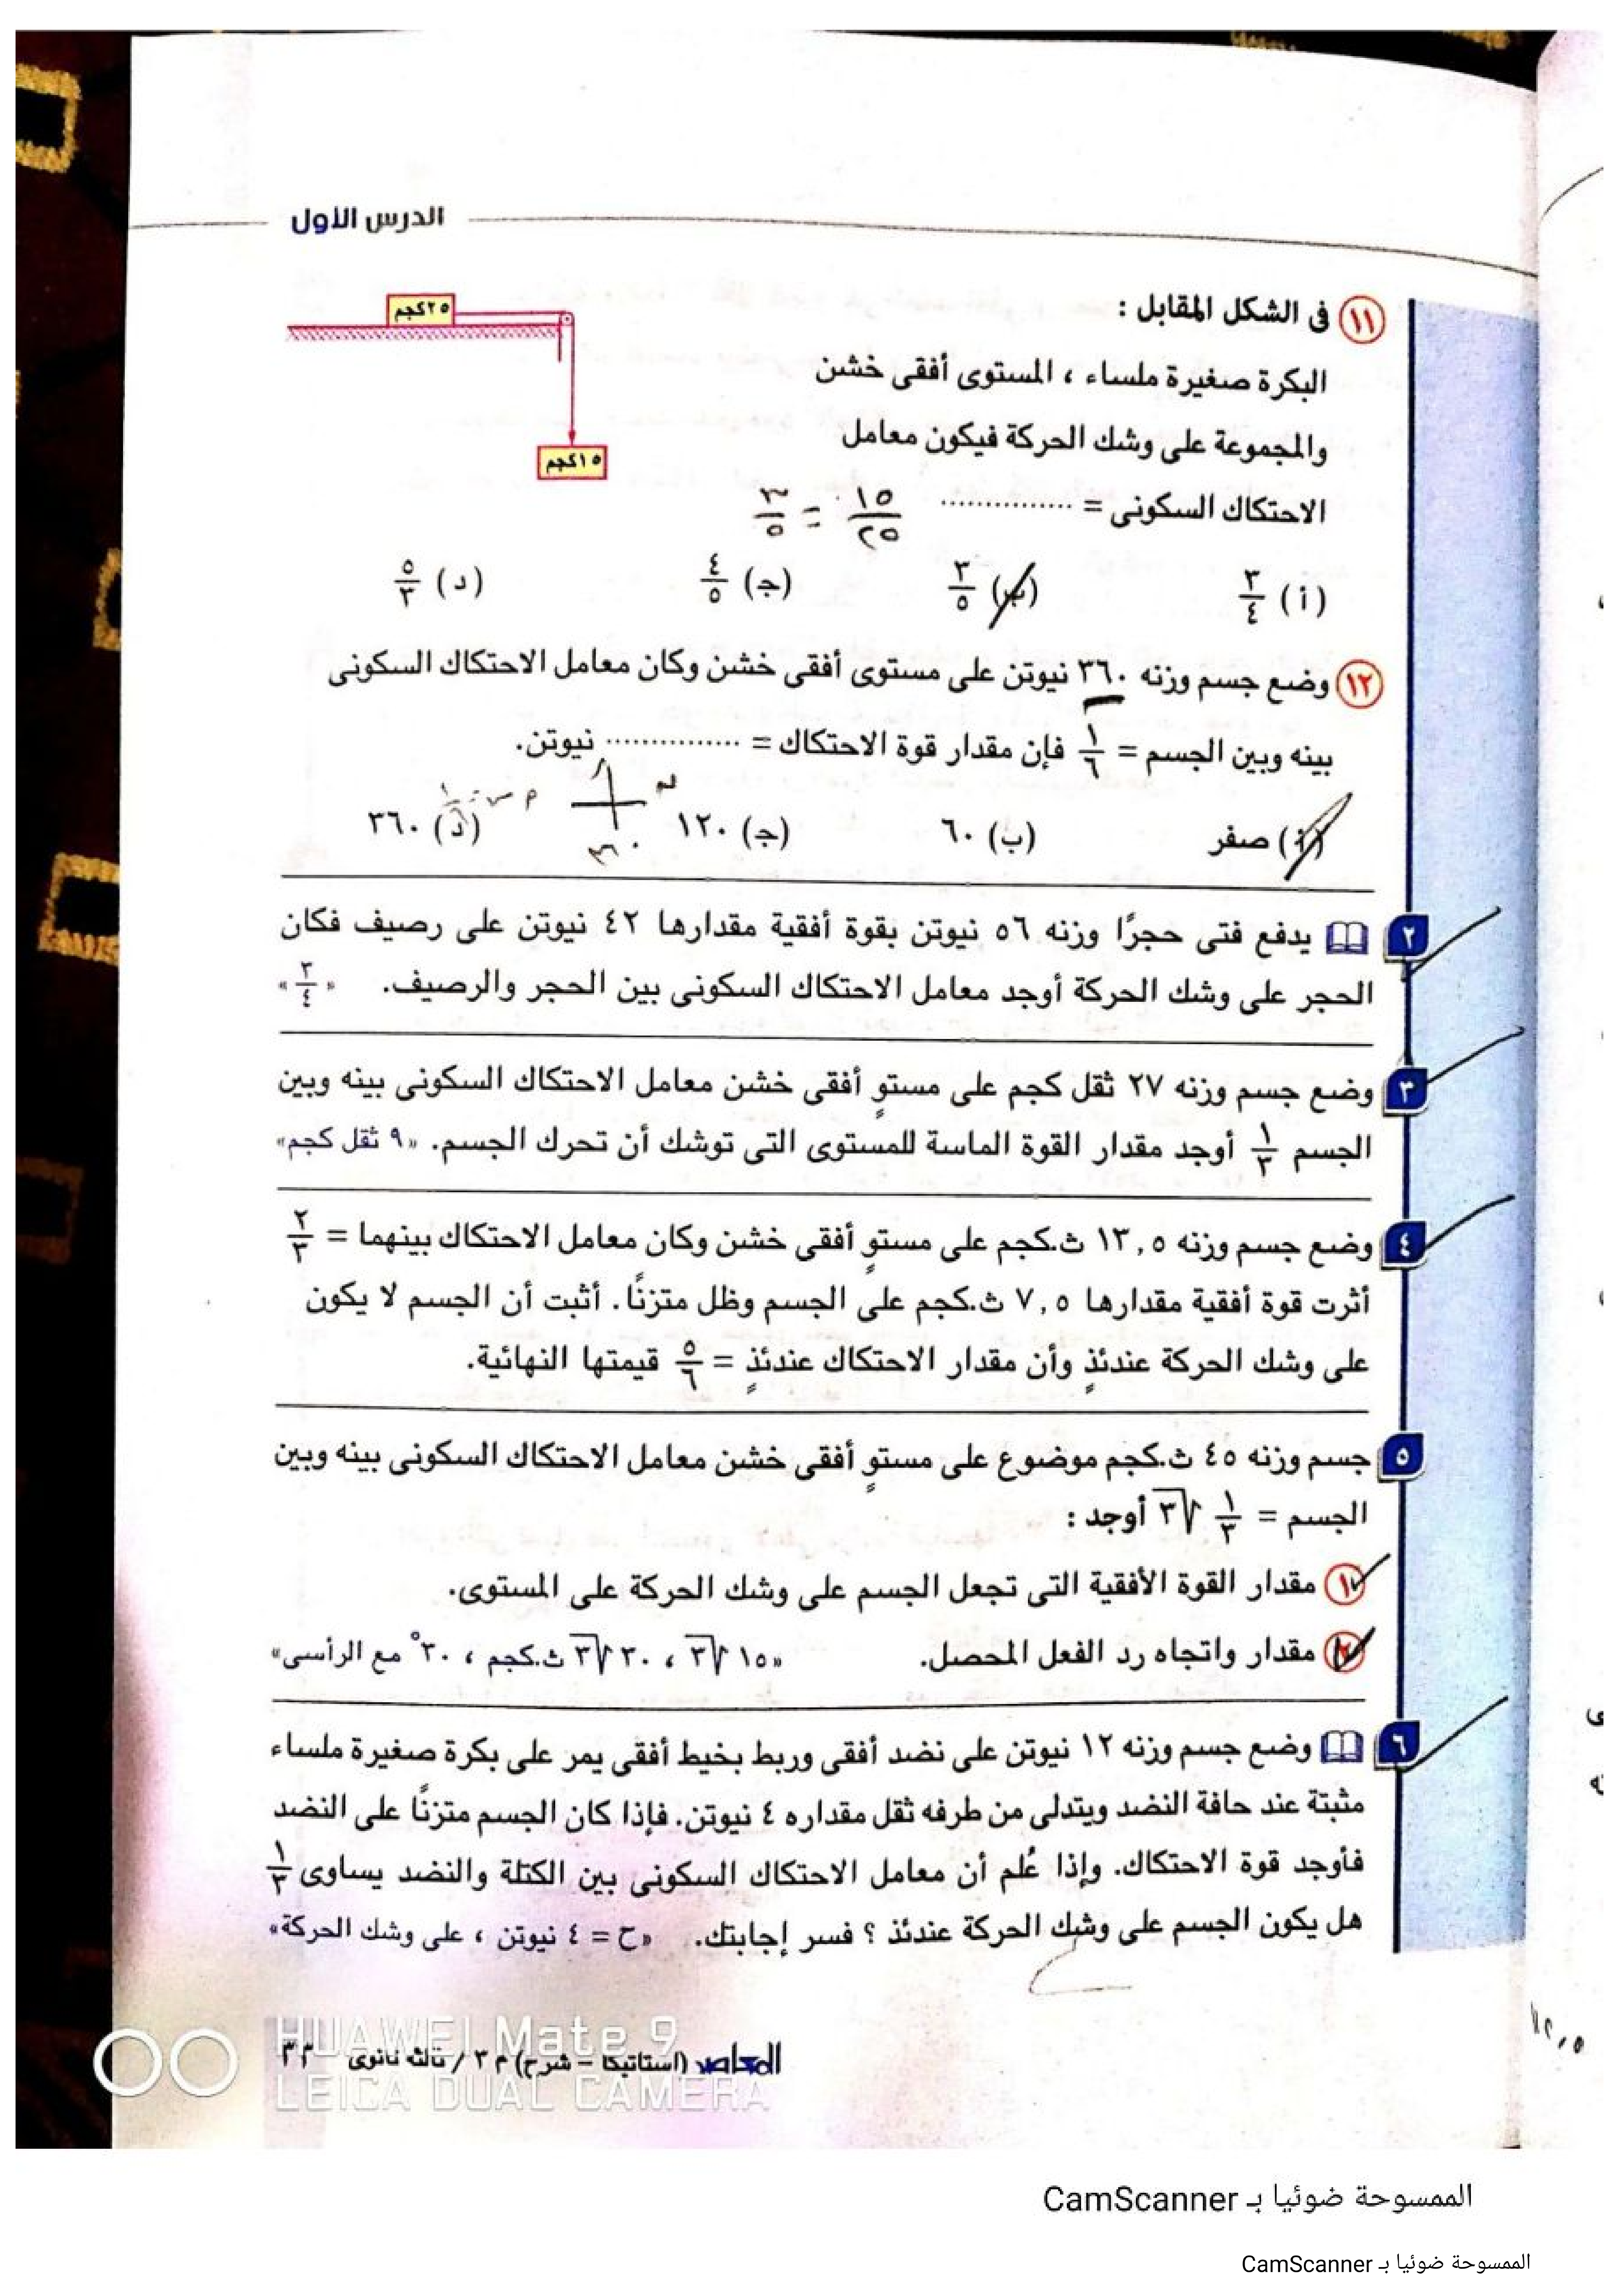 الدرس الأول
١١ فى الشكل المقابل :
٢٥ كجم
١٥ كجم
البكرة صغيرة ملساء ، المستوى أفقى خشن
والمجموعة على وشك الحركة فيكون معامل
الاحتكاك السكونى = ............... ١٥/٢٥ = ٣/٥
(أ) ٣/٤ (ب) ٣/٥ (ج) ٤/٥ (د) ٥/٣
١٢ وضع جسم وزنه ٣٦٠ نيوتن على مستوى أفقى خشن وكان معامل الاحتكاك السكونى
بينه وبين الجسم = ١/٦ فإن مقدار قوة الاحتكاك = ............... نيوتن.
(أ) صفر (ب) ٦٠ (ج) ١٢٠ (د) ٣٦٠
٣٦٠
٢ يدفع فتى حجرًا وزنه ٥٦ نيوتن بقوة أفقية مقدارها ٤٢ نيوتن على رصيف فكان
الحجر على وشك الحركة أوجد معامل الاحتكاك السكونى بين الحجر والرصيف. «٣/٤»
٣ وضع جسم وزنه ٢٧ ثقل كجم على مستوٍ أفقى خشن معامل الاحتكاك السكونى بينه وبين
الجسم ١/٣ أوجد مقدار القوة الماسة للمستوى التى توشك أن تحرك الجسم. «٩ ثقل كجم»
٤ وضع جسم وزنه ١٣,٥ ث.كجم على مستوٍ أفقى خشن وكان معامل الاحتكاك بينهما = ٢/٣
أثرت قوة أفقية مقدارها ٧,٥ ث.كجم على الجسم وظل متزنًا. أثبت أن الجسم لا يكون
على وشك الحركة عندئذٍ وأن مقدار الاحتكاك عندئذٍ = ٥/٦ قيمتها النهائية.
٥ جسم وزنه ٤٥ ث.كجم موضوع على مستوٍ أفقى خشن معامل الاحتكاك السكونى بينه وبين
الجسم = ١/٣ √٣ أوجد :
١ مقدار القوة الأفقية التى تجعل الجسم على وشك الحركة على المستوى.
٢ مقدار واتجاه رد الفعل المحصل. «١٥ √٣ ، ٣٠ √٣ ث.كجم ، ٣٠° مع الرأسى»
٦ وضع جسم وزنه ١٢ نيوتن على نضد أفقى وربط بخيط أفقى يمر على بكرة صغيرة ملساء
مثبتة عند حافة النضد ويتدلى من طرفه ثقل مقداره ٤ نيوتن. فإذا كان الجسم متزنًا على النضد
فأوجد قوة الاحتكاك. وإذا عُلم أن معامل الاحتكاك السكونى بين الكتلة والنضد يساوى ١/٣
هل يكون الجسم على وشك الحركة عندئذ ؟ فسر إجابتك. «ح = ٤ نيوتن ، على وشك الحركة»
المعاصر (استاتيكا - شرح) م ٣ / ثالثة ثانوى ٣٣
HUAWEI Mate 9
LEICA DUAL CAMERA
الممسوحة ضوئيا بـ CamScanner
الممسوحة ضوئيا بـ CamScanner